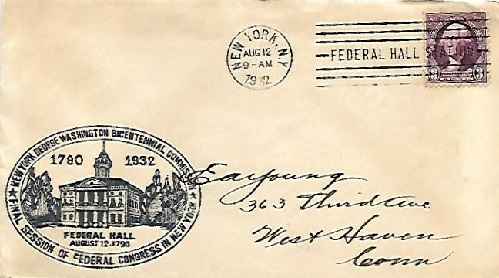 NEW YORK, N.Y.
AUG 12
9-AM
1932
FEDERAL HALL STATION
3 3
NEW YORK GEORGE WASHINGTON BICENTENNIAL COMMISSION
1790 1932
FEDERAL HALL
AUGUST 12-1790
FINAL SESSION OF FEDERAL CONGRESS IN NEW YORK
363 Third Ave
West Haven
Conn